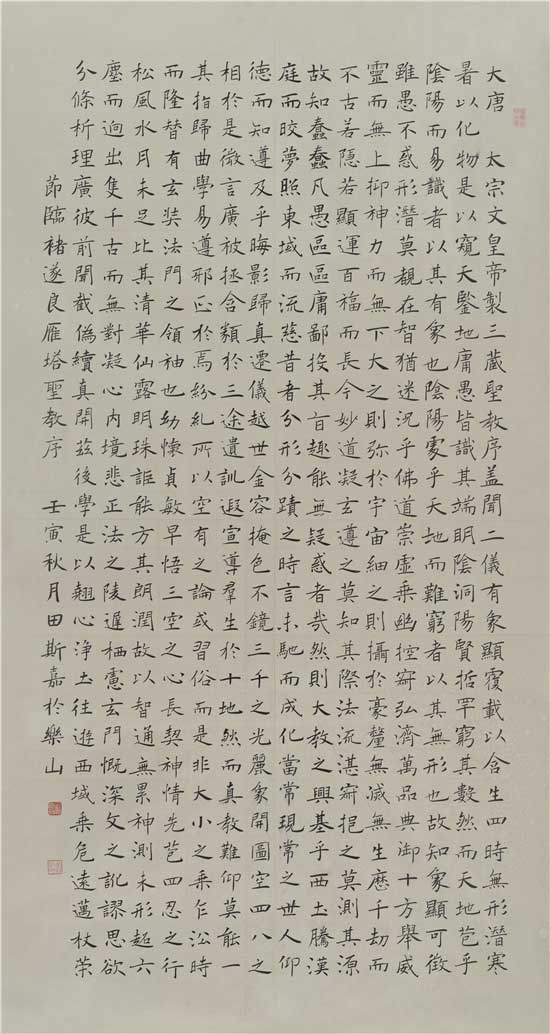 大唐　太宗文皇帝製三藏聖教序蓋聞二儀有象顯覆載以含生四時無形潛寒
暑以化物是以窺天鑒地庸愚皆識其端明陰洞陽賢哲罕窮其數然而天地苞乎
陰陽而易識者以其有象也陰陽處乎天地而難窮者以其無形也故知象顯可徵
雖愚不惑形潛莫覩在智猶迷況乎佛道崇虛乘幽控寂弘濟萬品典御十方舉威
靈而無上抑神力而無下大之則彌於宇宙細之則攝於豪釐無滅無生歷千劫而
不古若隱若顯運百福而長今妙道凝玄遵之莫知其際法流湛寂挹之莫測其源
故知蠢蠢凡愚區區庸鄙投其旨趣能無疑惑者哉然則大教之興基乎西土騰漢
庭而皎夢照東域而流慈昔者分形分蹟之時言未馳而成化當常現常之世人仰
德而知遵及乎晦影歸真遷儀越世金容掩色不鏡三千之光麗象開圖空四八之
相於是微言廣被拯含類於三途遺訓遐宣導羣生於十地然而真教難仰莫能一
其指歸曲學易遵邪正於焉紛糺所以空有之論或習俗而是非大小之乘乍沿時
而隆替有玄奘法門之領袖也幼懷貞敏早悟三空之心長契神情先苞四忍之行
松風水月未足比其清華仙露明珠詎能方其朗潤故以智通無累神測未形超六
塵而迥出隻千古而無對凝心內境悲正法之陵遲栖慮玄門慨深文之訛謬思欲
分條析理廣彼前聞截偽續真開茲後學是以翹心淨土往遊西域乘危遠邁杖策
節臨褚遂良雁塔聖教序　壬寅秋月田斯嘉於樂山